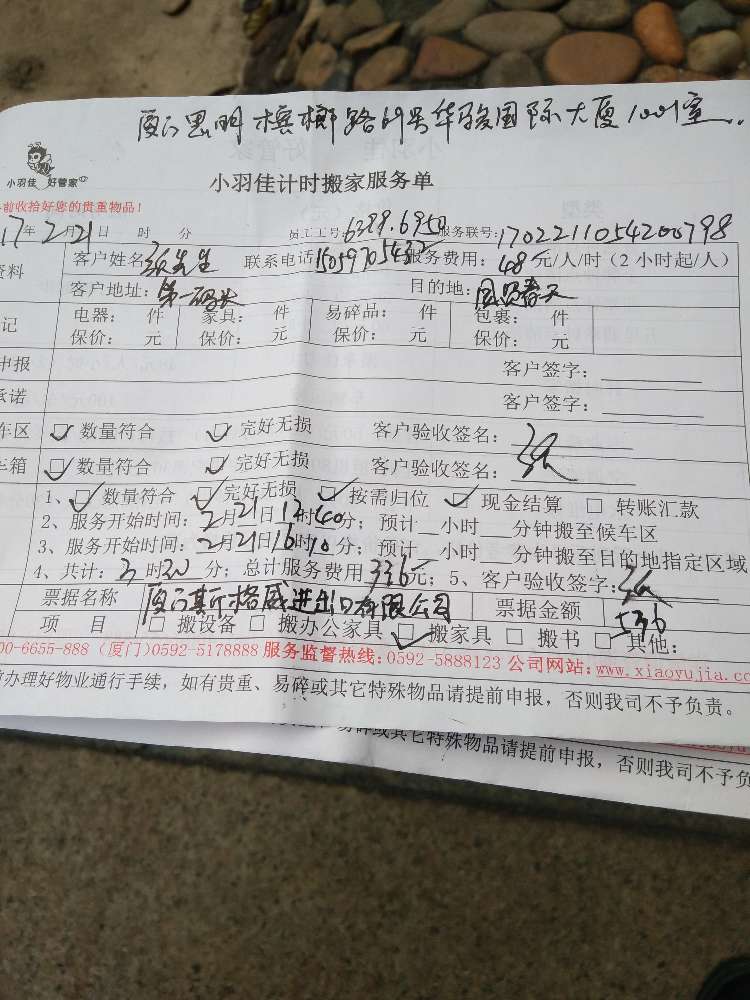 厦门思明槟榔路19号华骏国际大厦1001室
小羽佳 好管家
小羽佳计时搬家服务单
前收拾好您的贵重物品！
17年2月21日 时 分 员工工号：6389.6950 服务联号：1702211054200798
资料 客户姓名 先生 联系电话 服务费用：48元/人/时（2小时起/人）
客户地址：第一码头 目的地：国贸春天
记 电器： 件 家具： 件 易碎品： 件 包裹： 件
保价： 元 保价： 元 保价： 元 保价： 元
申报 客户签字：
承诺 客户签字：
车区 ☑ 数量符合 ☑ 完好无损 客户验收签名：
车箱 ☑ 数量符合 ☑ 完好无损 客户验收签名：
1、☑ 数量符合 ☑ 完好无损 ☑ 按需归位 ☑ 现金结算 □ 转账汇款
2、服务开始时间：2月21日12时40分；预计__小时__分钟搬至候车区
3、服务开始时间：2月21日16时10分；预计__小时__分钟搬至目的地指定区域
4、共计：3时30分；总计服务费用336元；5、客户验收签字：
票据名称 厦门斯格威进出口有限公司 票据金额 536
项 目 □ 搬设备 □ 搬办公家具 ☑ 搬家具 □ 搬书 □ 其他：
00-6655-888（厦门）0592-5178888 服务监督热线：0592-5888123 公司网站：www.xiaoyujia.co
办理好物业通行手续，如有贵重、易碎或其它特殊物品请提前申报，否则我司不予负责。
易碎或其它特殊物品请提前申报，否则我司不予负